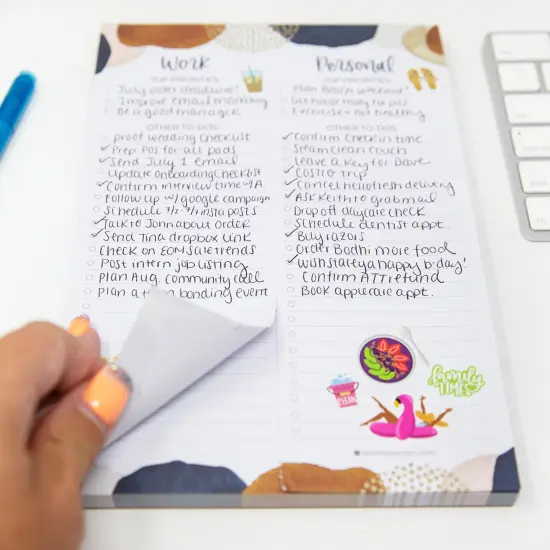 Work
TOP PRIORITIES
July order deadline!
Improve email marketing
Be a good manager
OTHER TO-DOS:
proof wedding checklist
Prep POS for all pads
Send July 1 email
Update onboarding checklist
Confirm interview time w/A
Follow up w/google campaign
Schedule 7/2-7/9 insta posts
Talk to John about order
Send Tina dropbox link
Check on EOM sale trends
Post intern job listing
Plan Aug. community call
plan a bonding event
Personal
TOP PRIORITIES
Plan Beach weekend!
Get house ready for
Exercise + eat healthy
OTHER TO-DOS:
Confirm check in time
Steam clean couch
Leave a key for Dave
COSTCO trip
Cancel hellofresh delivery
ASK Keith to grab mail
Drop off daycare check
Schedule dentist appt
Buy razors
Order Bodhi more food
Wish staley a happy b-day!
Confirm ATT refund
Book applecare appt.
CLEAN
family
TIME